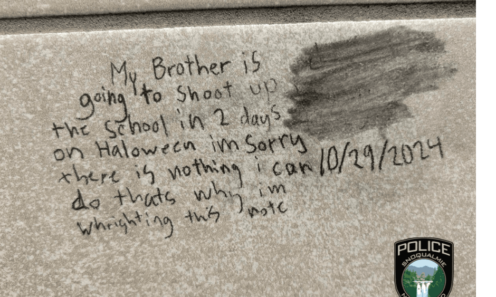 My Brother is
going to Shoot up
the School in 2 days
on Haloween im Sorry
there is nothing i can 10/29/2024
do thats why im
whrighting this note
POLICE
SNOQUALMIE